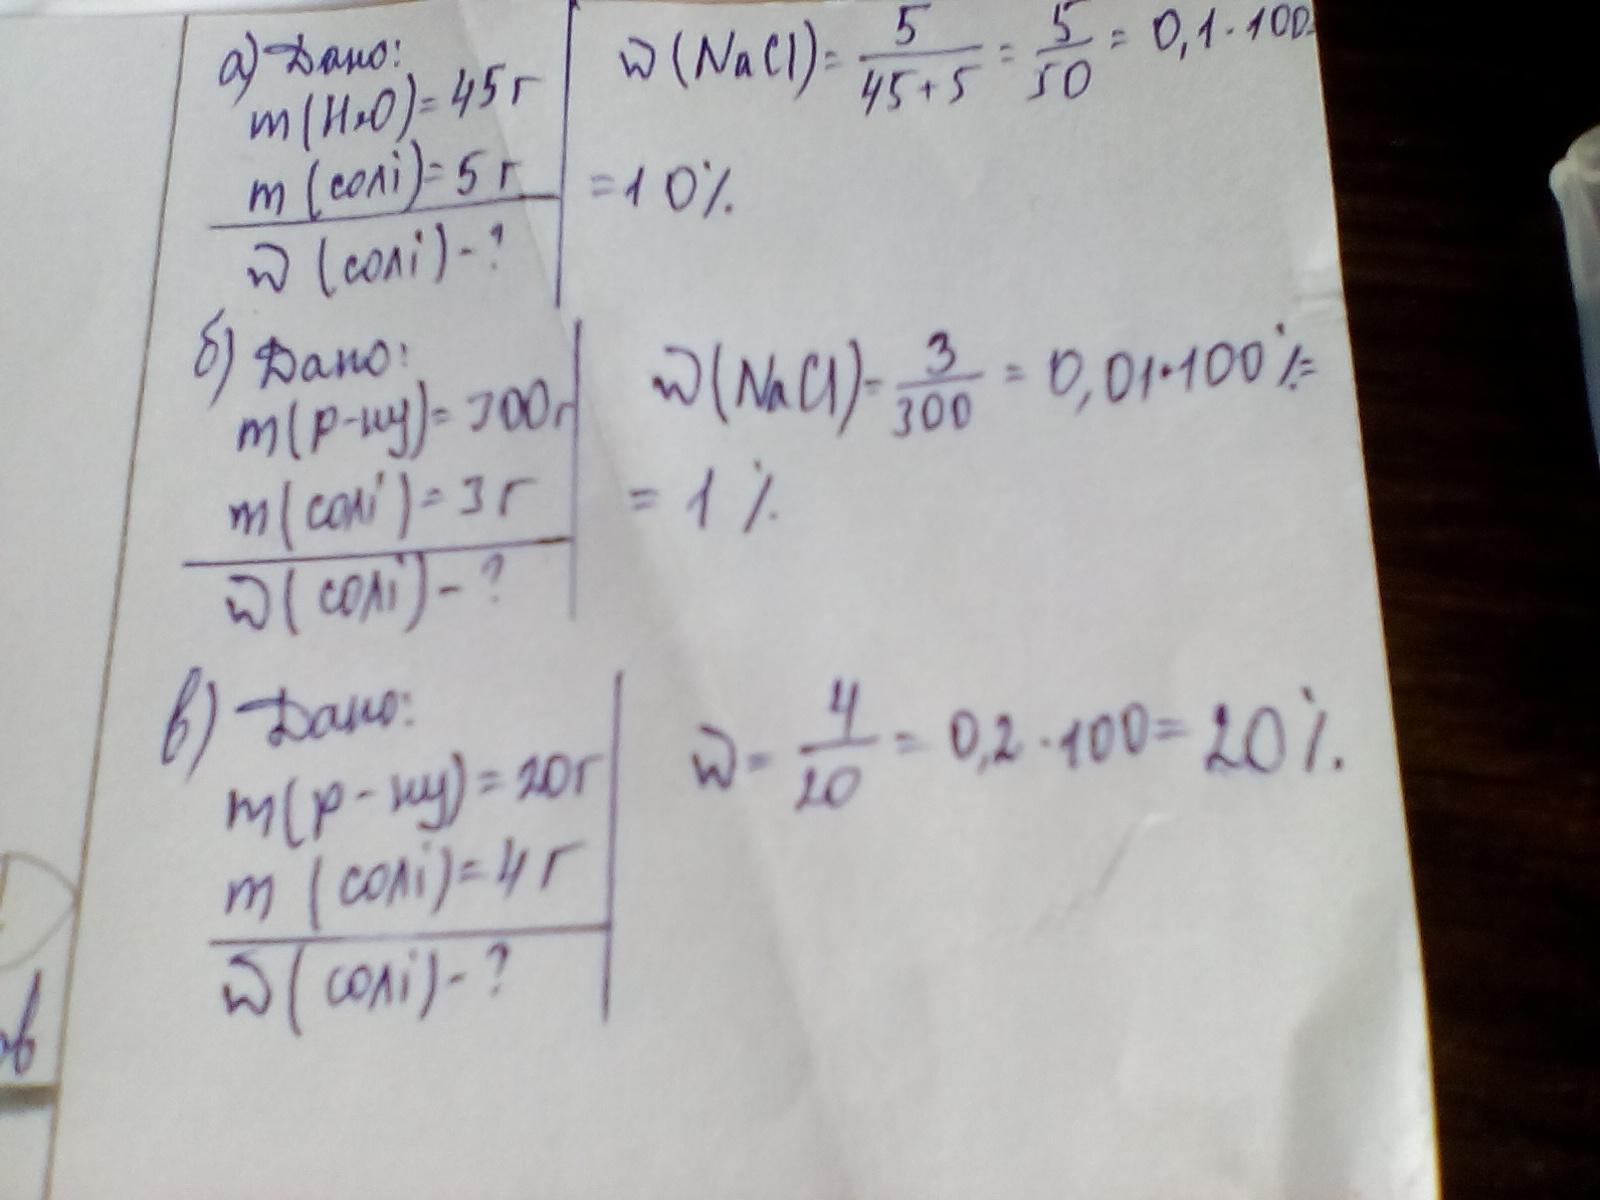 а) Дано:
m(H₂O)=45г
m(солі)=5г
w(солі)-?
w(NaCl)=5/(45+5)=5/50=0,1·100
=10%
б) Дано:
m(р-ну)=300г
m(солі)=3г
w(солі)-?
w(NaCl)=3/300=0,01·100%=
=1%
в) Дано:
m(р-ну)=20г
m(солі)=4г
w(солі)-?
w=4/20=0,2·100=20%.